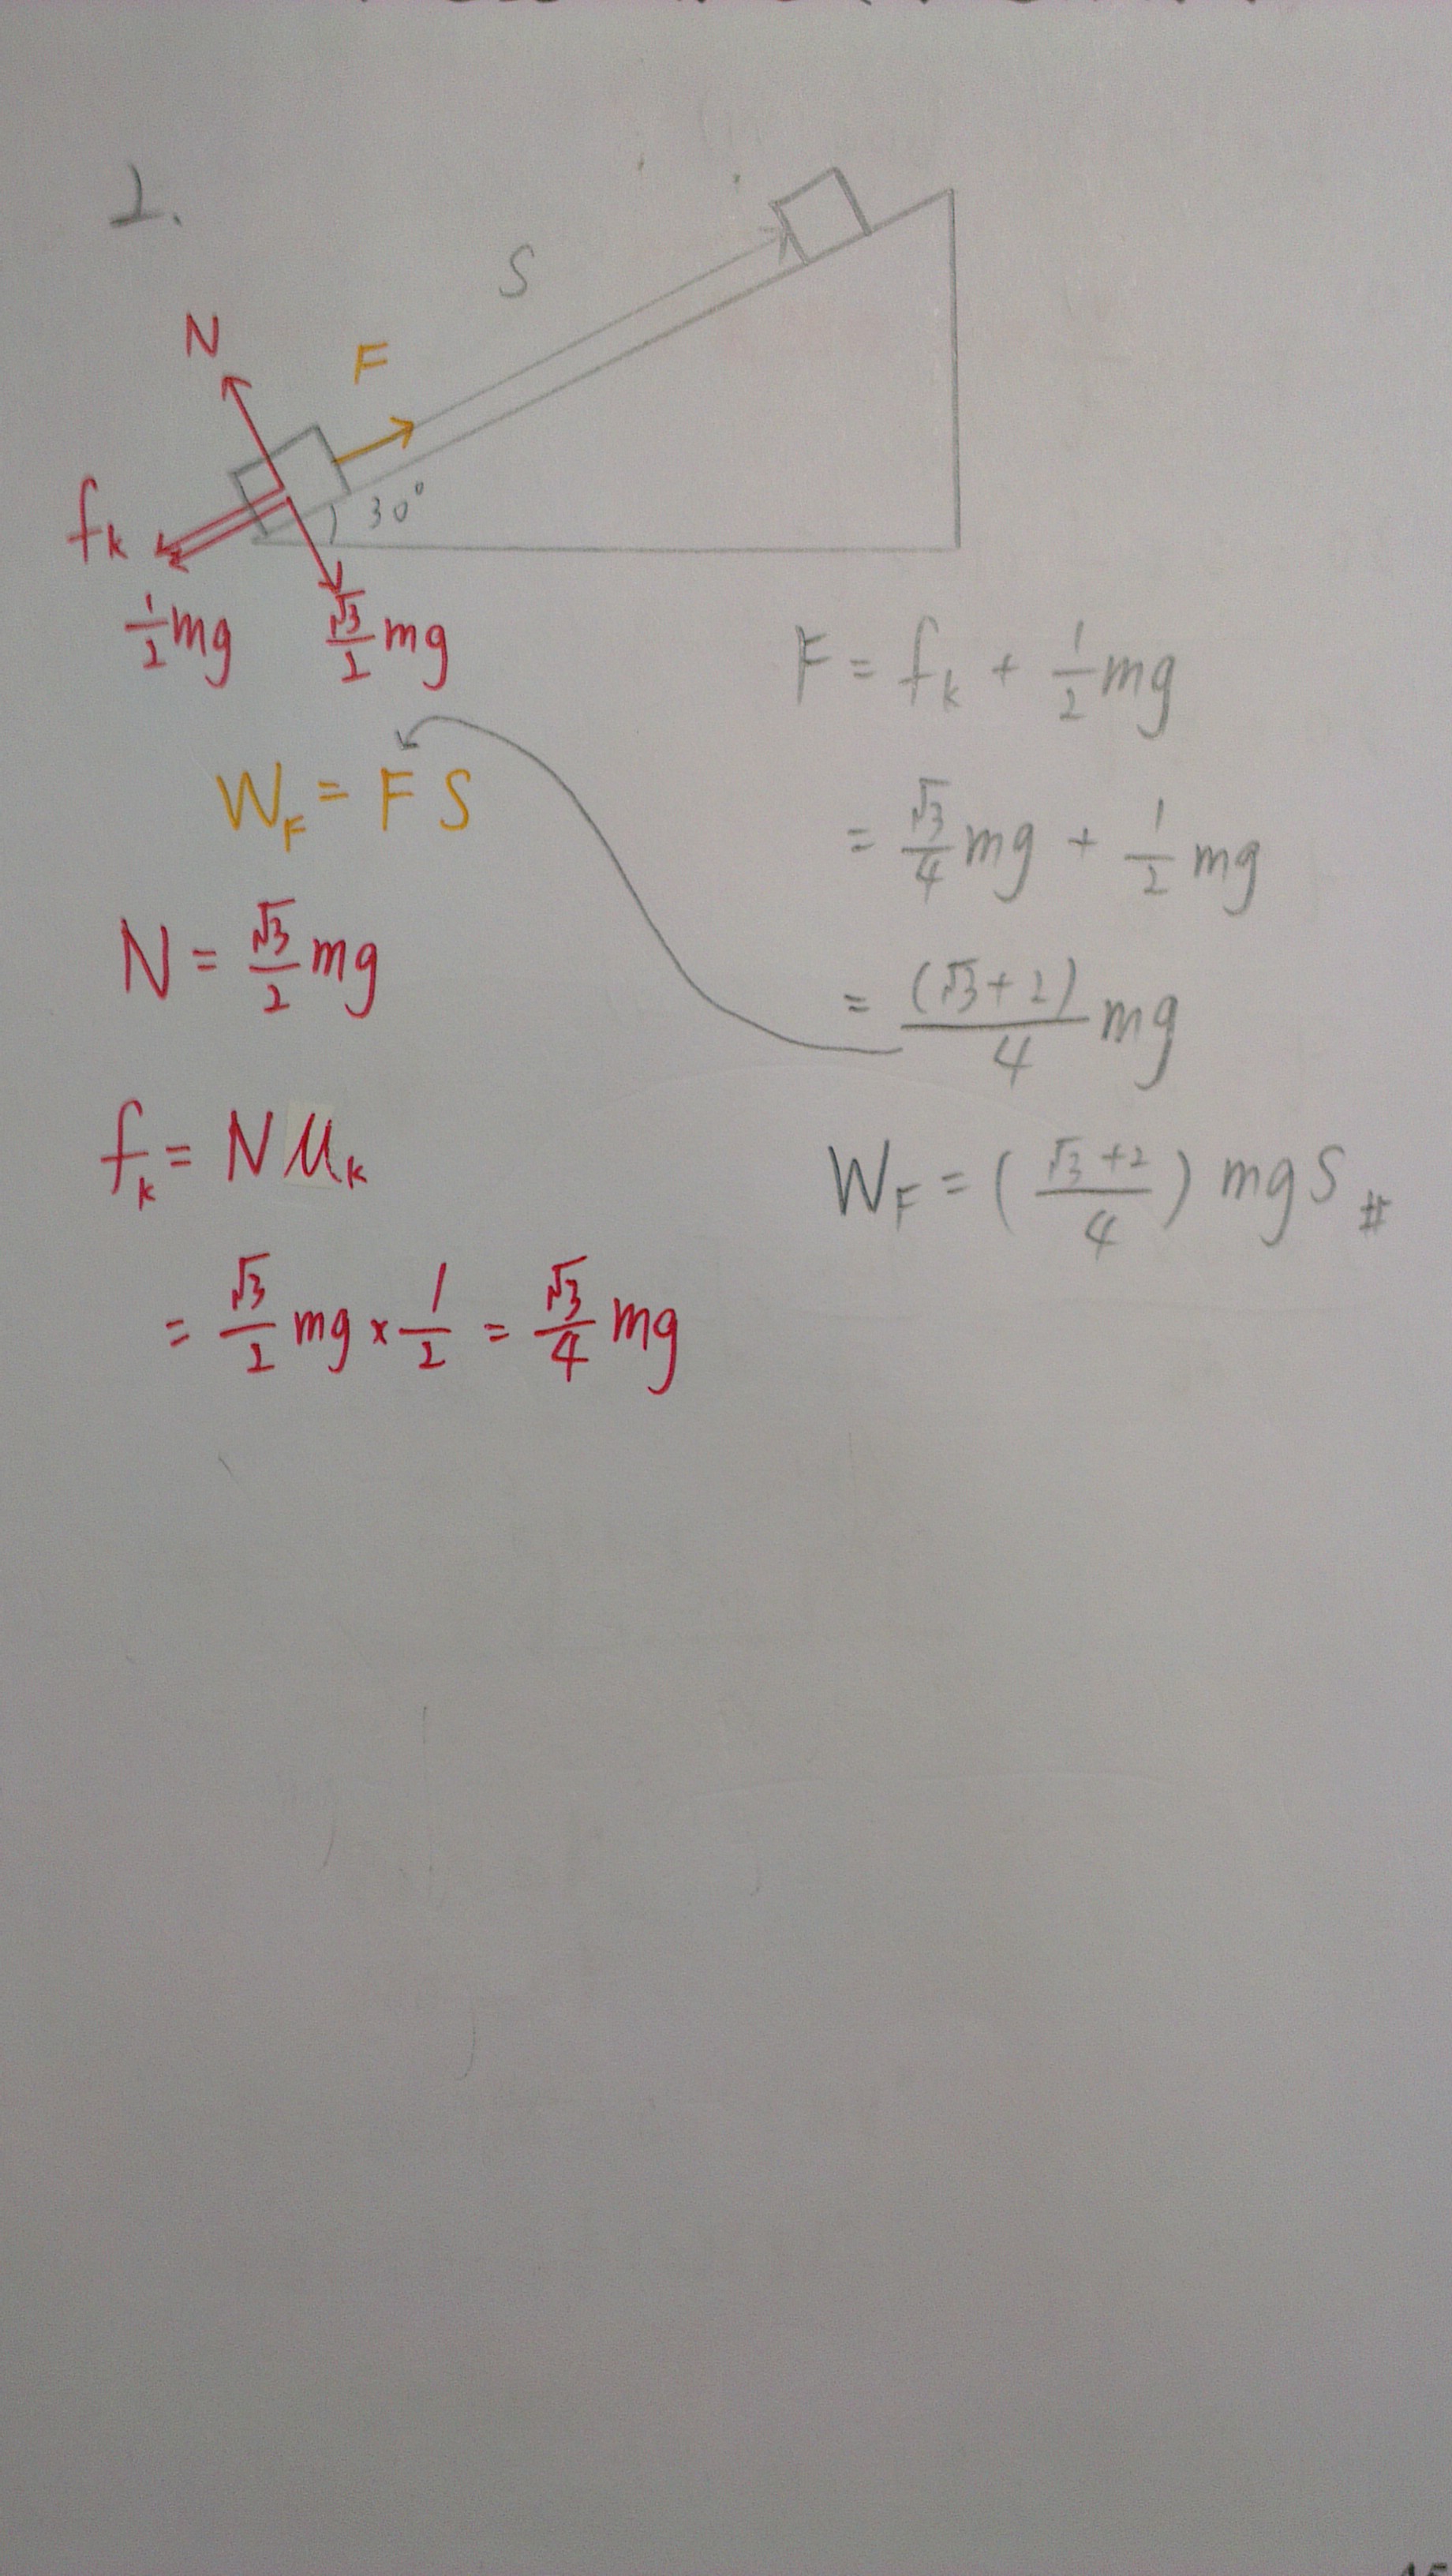 2.
S
N
F
30°
fk
1/2 mg
√3/2 mg
F = fk + 1/2 mg
= √3/4 mg + 1/2 mg
= (√3+2)/4 mg
WF = (√3+2/4) mgS #
WF = FS
N = √3/2 mg
fk = Nμk
= √3/2 mg × 1/2 = √3/4 mg